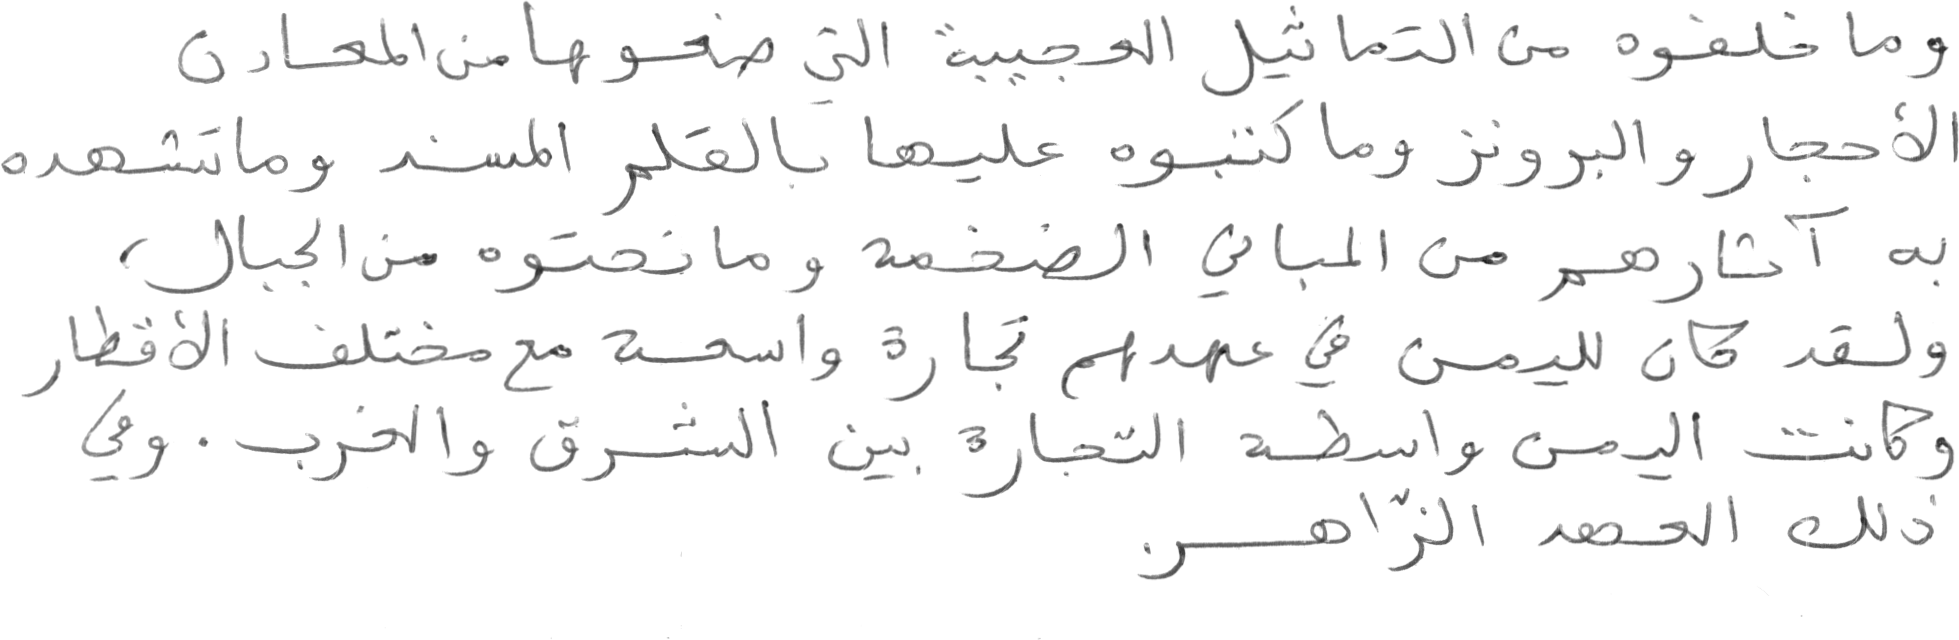 وما خلفوه من التماثيل العجيبة التي صنعوها من المعادن
الأحجار والبرونز وما كتبوه عليها بالقلم المسند وما تشهده
به آثارهم من المباني الضخمة وما نحتوه من الجبال،
ولقد كان لليمن في عهدهم تجارة واسعة مع مختلف الأقطار
وكانت اليمن واسطة التجارة بين الشرق والغرب. وفي
ذلك العهد الزّاهر.